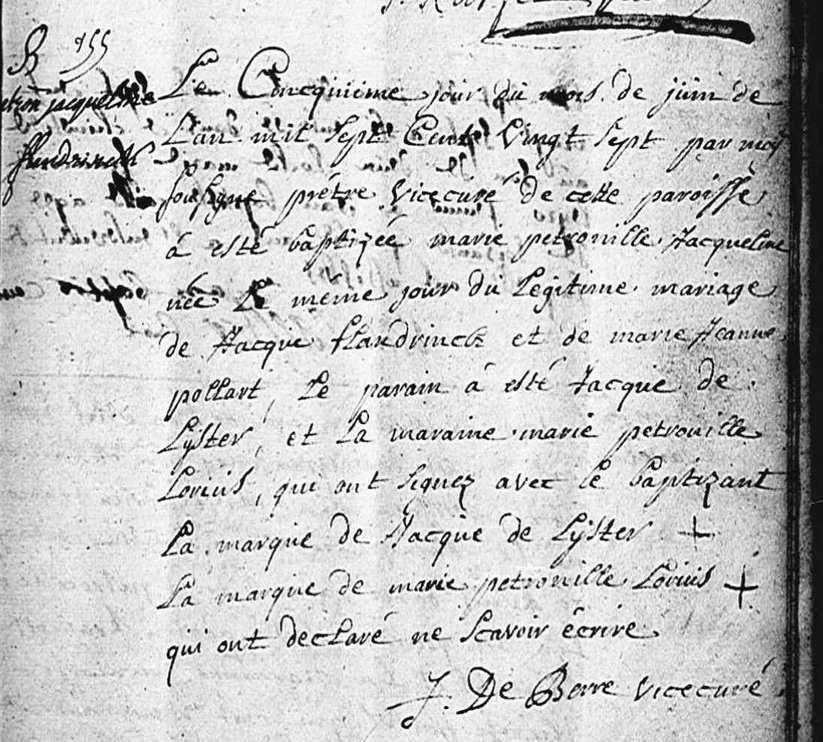 B 155
Le Cincquieme jour du mois de juin de
L'an mil sept Cent Vingt sept par moy
sousigné prétre Vicecuré de cette paroisse
à esté baptizéé marie petronille Jacqueline
néé Le méme jour du Legitime mariage
de Jacque flandrinck et de marie Jeanne
pollart, Le parain à esté Jacque de
Lyster, et La maraine marie petronille
Lorius, qui ont signez avec le baptizant
La marque de Jacque de Lyster +
La marque de marie petronille Lorius +
qui ont declaré ne scavoir écrire
J. De Berre vicecuré